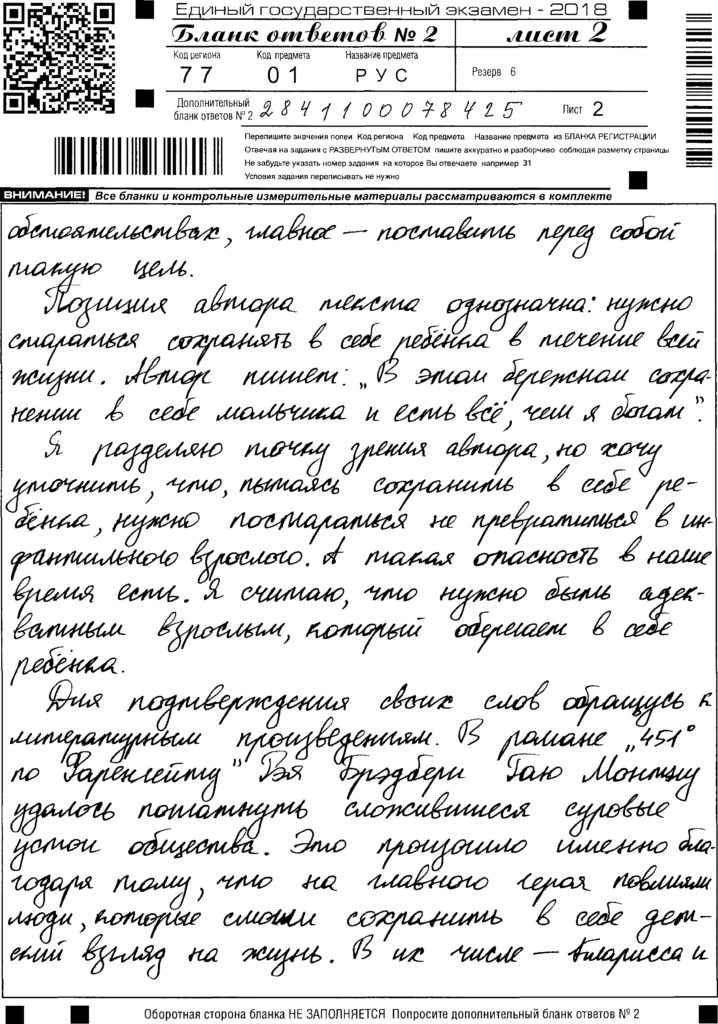 Единый государственный экзамен - 2018
Бланк ответов № 2
лист 2
Код региона Код предмета Название предмета
77 01 РУС
Резерв 6
Дополнительный
бланк ответов № 2 2841100078425 Лист 2
Перепишите значения полей Код региона Код предмета Название предмета из БЛАНКА РЕГИСТРАЦИИ
Отвечая на задания с РАЗВЕРНУТЫМ ОТВЕТОМ пишите аккуратно и разборчиво соблюдая разметку страницы
Не забудьте указать номер задания на которое Вы отвечаете например 31
Условия задания переписывать не нужно
ВНИМАНИЕ! Все бланки и контрольные измерительные материалы рассматриваются в комплекте
обстоятельствах, главное — поставить перед собой
такую цель.
Позиция автора текста однозначна: нужно
стараться сохранять в себе ребёнка в течение всей
жизни. Автор пишет: „В этом бережном сохра-
нении в себе мальчика и есть всё, чем я богат".
Я разделяю точку зрения автора, но хочу
уточнить, что, пытаясь сохранить в себе ре-
бёнка, нужно постараться не превратиться в ин-
фантильного взрослого. А такая опасность в наше
время есть. Я считаю, что нужно быть адек-
ватным взрослым, который оберегает в себе
ребёнка.
Для подтверждения своих слов обращусь к
литературным произведениям. В романе „451°
по Фаренгейту" Рэя Брэдбери Гаю Монтэгу
удалось пошатнуть сложившиеся суровые
устои общества. Это произошло именно бла-
годаря тому, что на главного героя повлияли
люди, которые смогли сохранить в себе дет-
ский взгляд на жизнь. В их числе — Кларисса и
Оборотная сторона бланка НЕ ЗАПОЛНЯЕТСЯ Попросите дополнительный бланк ответов № 2